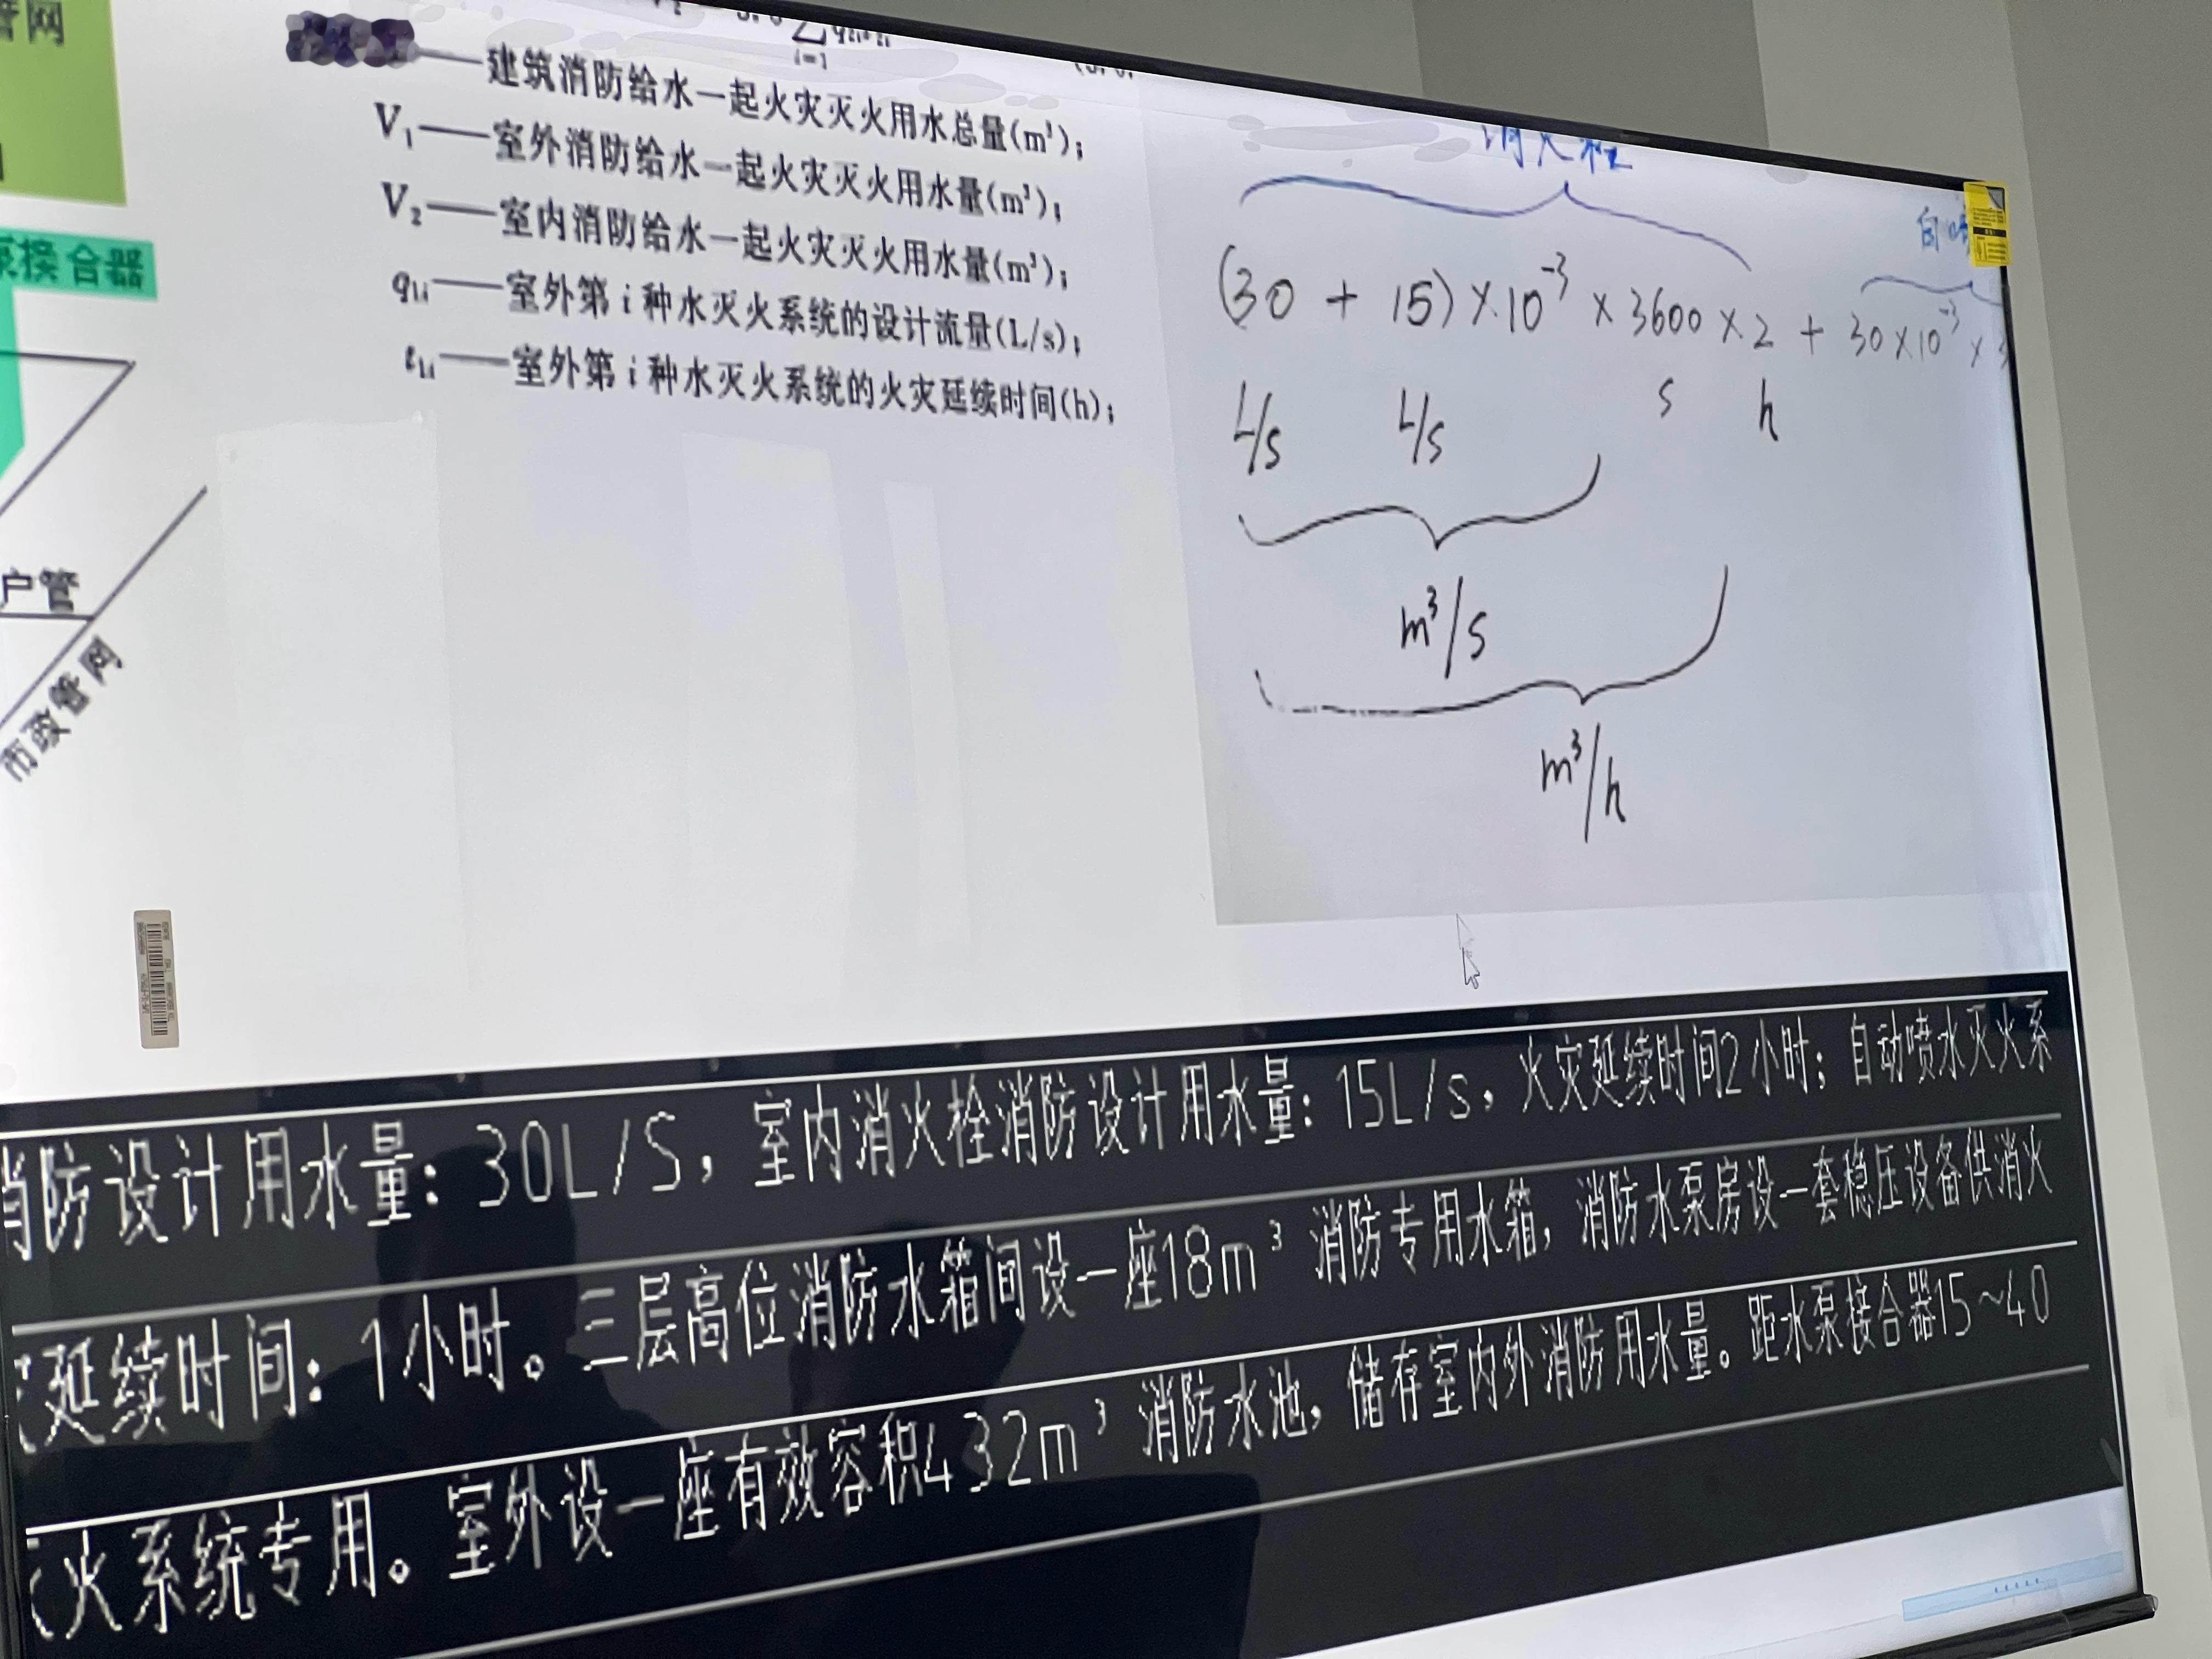 管网
泵接合器
户管
市政管网
——建筑消防给水一起火灾灭火用水总量(m³);
V₁——室外消防给水一起火灾灭火用水量(m³);
V₂——室内消防给水一起火灾灭火用水量(m³);
q₁ᵢ——室外第 i 种水灭火系统的设计流量(L/s);
t₁ᵢ——室外第 i 种水灭火系统的火灾延续时间(h);
消火栓
自喷
(30 + 15) × 10⁻³ × 3600 × 2 + 30 × 10⁻³ ×
L/s L/s s h
m³/s
m³/h
消防设计用水量: 30L/S, 室内消火栓消防设计用水量: 15L/s, 火灾延续时间2小时; 自动喷水灭火系
延续时间: 1小时。三层高位消防水箱间设一座18m³ 消防专用水箱, 消防水泵房设一套稳压设备供消火
火系统专用。室外设一座有效容积432m³ 消防水池, 储存室内外消防用水量。距水泵接合器15~40